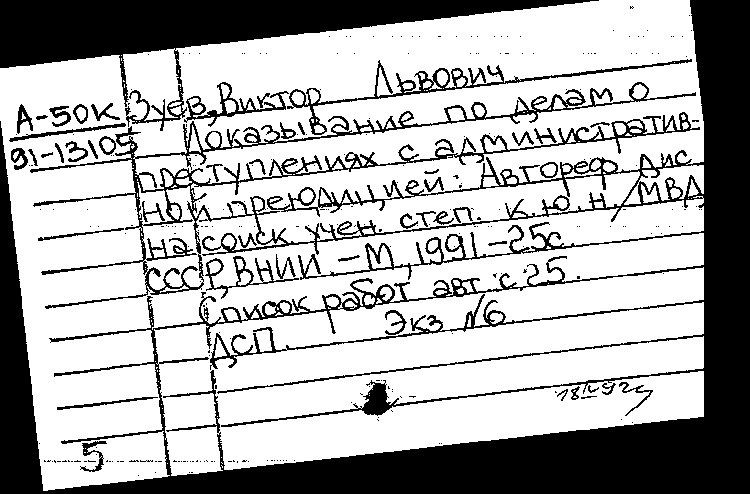 А-50К Зуев, Виктор Львович.
91-13105 Доказывание по делам о
преступлениях с административ-
ной преюдицией: Автореф. дис
на соиск учен. степ. к.ю.н. /МВД
СССР, ВНИИ. – М, 1991. – 25с.
Список работ авт: с.25.
ДСП. Экз №6
18 IV 92г
5